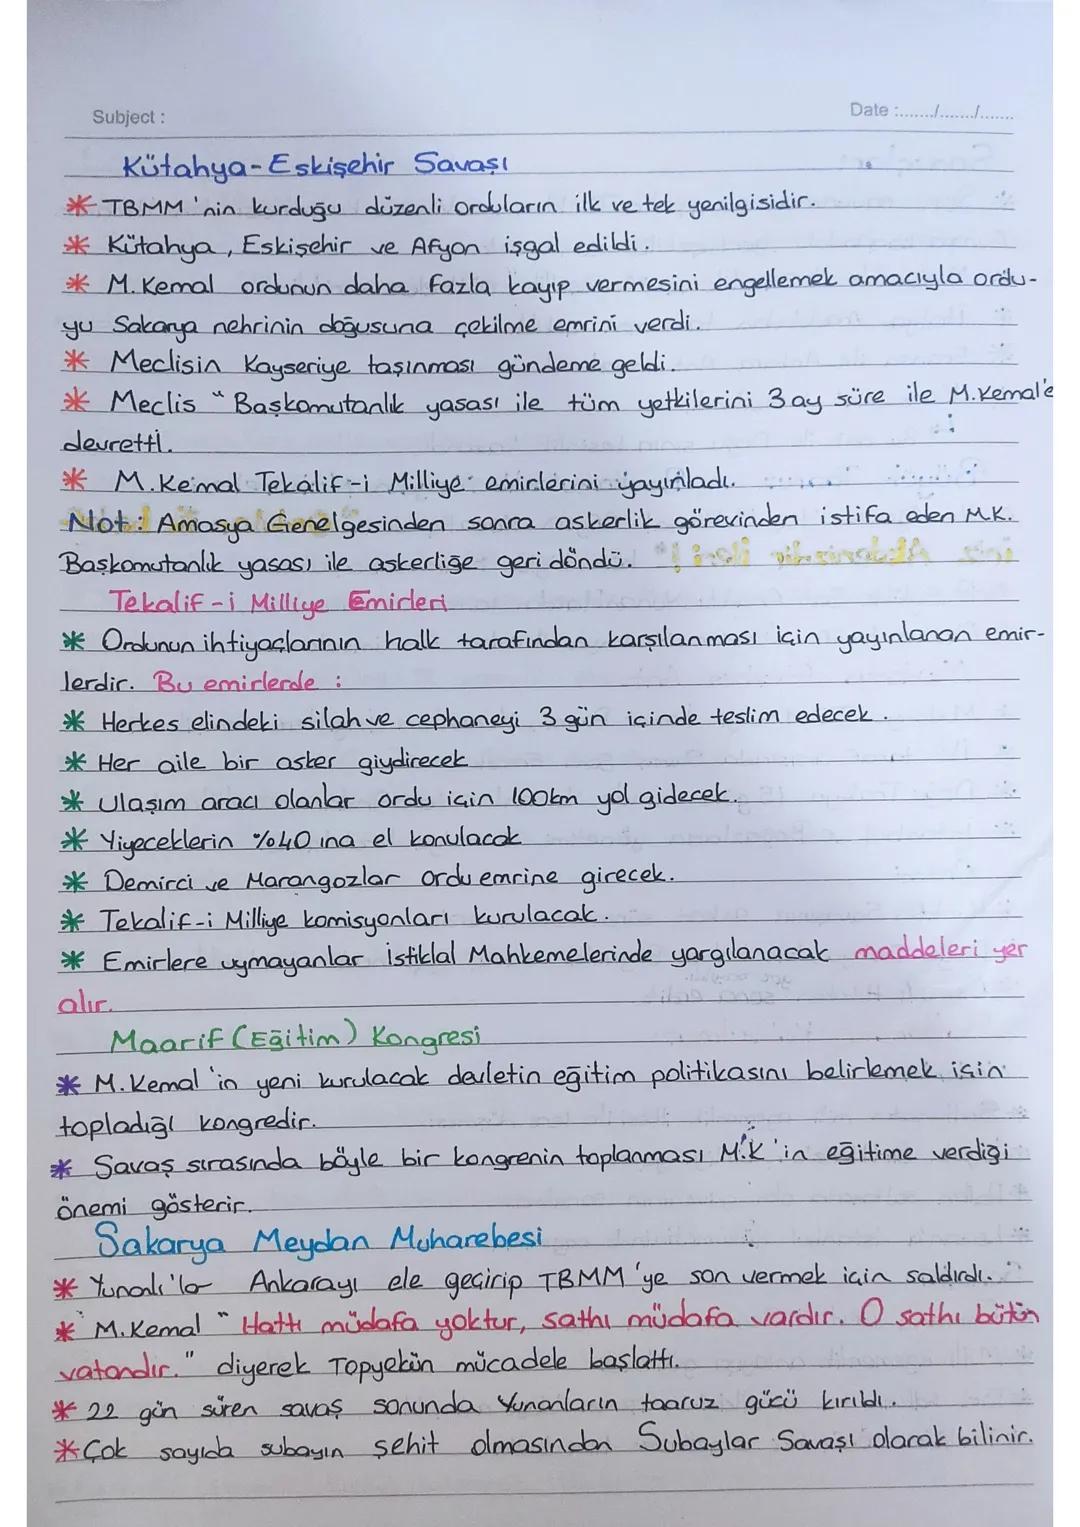 Subject :
Date :......../......../........
Kütahya-Eskişehir Savaşı
* TBMM'nin kurduğu düzenli orduların ilk ve tek yenilgisidir.
* Kütahya, Eskişehir ve Afyon işgal edildi.
* M.Kemal ordunun daha fazla kayıp vermesini engellemek amacıyla ordu-
yu Sakarya nehrinin doğusuna çekilme emrini verdi.
* Meclisin Kayseriye taşınması gündeme geldi.
* Meclis "Başkomutanlık yasası ile tüm yetkilerini 3 ay süre ile M.Kemal'e
devretti.
* M.Kemal Tekalif-i Milliye emirlerini yayınladı.
Not: Amasya Genelgesinden sonra askerlik görevinden istifa eden M.K.
Başkomutanlık yasası ile askerliğe geri döndü.
Tekalif-i Milliye Emirleri
* Ordunun ihtiyaçlarının halk tarafından karşılanması için yayınlanan emir-
lerdir. Bu emirlerde :
* Herkes elindeki silah ve cephaneyi 3 gün içinde teslim edecek.
* Her aile bir asker giydirecek
* Ulaşım aracı olanlar ordu için 100km yol gidecek.
* Yiyeceklerin %40 ına el konulacak
* Demirci ve Marangozlar ordu emrine girecek.
* Tekalif-i Milliye komisyonları kurulacak.
* Emirlere uymayanlar İstiklal Mahkemelerinde yargılanacak maddeleri yer
alır.
Maarif (Eğitim) Kongresi
* M.Kemal'in yeni kurulacak devletin eğitim politikasını belirlemek için
topladığı kongredir.
* Savaş sırasında böyle bir kongrenin toplanması M.K'in eğitime verdiği
önemi gösterir.
Sakarya Meydan Muharebesi
* Yunanlı'lar Ankarayı ele geçirip TBMM'ye son vermek için saldırdı.
* M.Kemal "Hattı müdafa yoktur, sathı müdafa vardır. O sathı bütün
vatandır." diyerek Topyekün mücadele başlattı.
* 22 gün süren savaş sonunda Yunanların taaruz gücü kırıldı.
* Çok sayıda subayın şehit olmasından Subaylar Savaşı olarak bilinir.